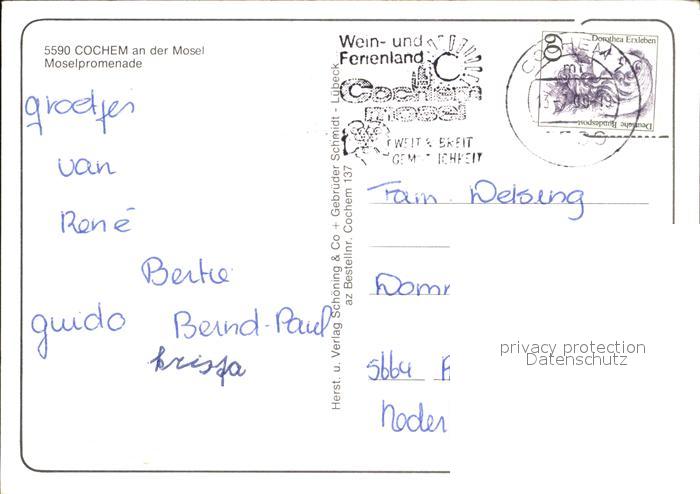 5590 COCHEM an der Mosel
Moselpromenade
groetjes
van
René
Bertie
guido Bernd-Paul
krista
Herst. u. Verlag Schöning & Co + Gebrüder Schmidt - Lübeck
az Bestellnr. Cochem 137
Wein- und
Ferienland
Cochem
mosel
WEIT & BREIT
GEM TLICHKEIT
60
Dorothea Erxleben
Deutsche Bundespost
Fam. Delsing
Domm
5664
Neder
privacy protection
Datenschutz